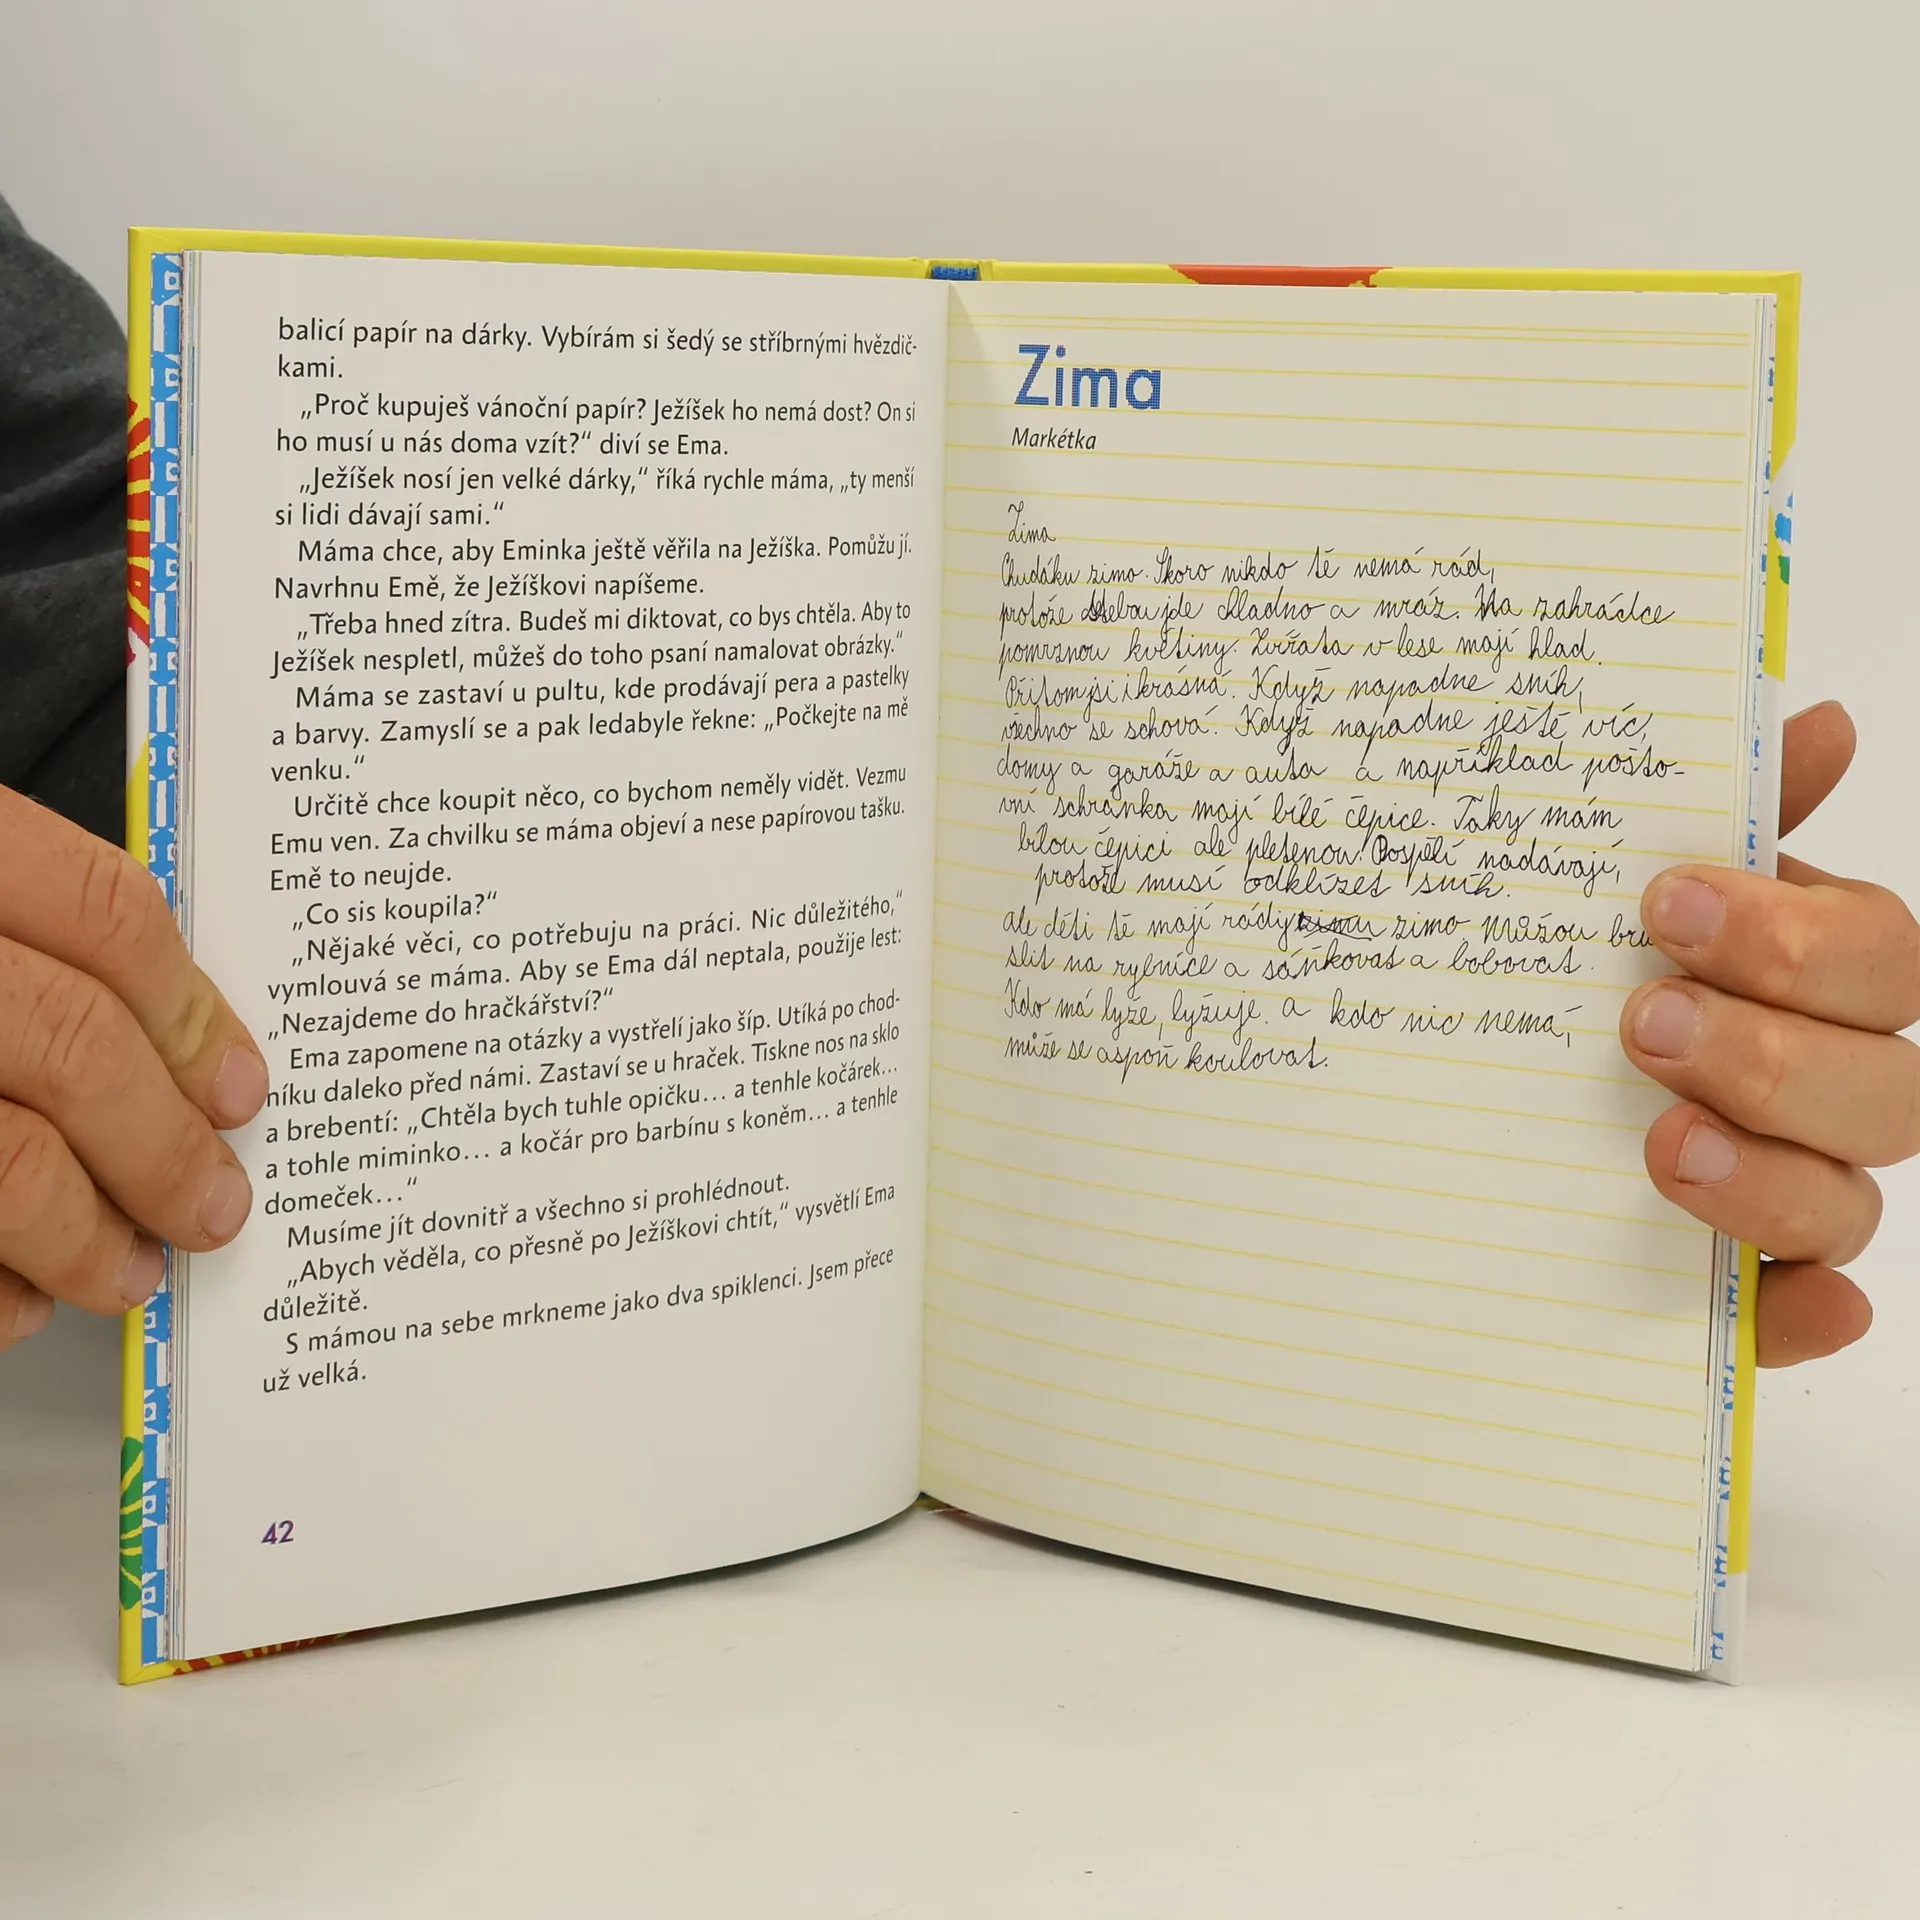 balicí papír na dárky. Vybírám si šedý se stříbrnými hvězdič-
kami.
„Proč kupuješ vánoční papír? Ježíšek ho nemá dost? On si
ho musí u nás doma vzít?“ diví se Ema.
„Ježíšek nosí jen velké dárky,“ říká rychle máma, „ty menší
si lidi dávají sami.“
Máma chce, aby Eminka ještě věřila na Ježíška. Pomůžu jí.
Navrhnu Emě, že Ježíškovi napíšeme.
„Třeba hned zítra. Budeš mi diktovat, co bys chtěla. Aby to
Ježíšek nespletl, můžeš do toho psaní namalovat obrázky.“
Máma se zastaví u pultu, kde prodávají pera a pastelky
a barvy. Zamyslí se a pak ledabyle řekne: „Počkejte na mě
venku.“
Určitě chce koupit něco, co bychom neměly vidět. Vezmu
Emu ven. Za chvilku se máma objeví a nese papírovou tašku.
Emě to neujde.
„Co sis koupila?“
„Nějaké věci, co potřebuju na práci. Nic důležitého,“
vymlouvá se máma. Aby se Ema dál neptala, použije lest:
„Nezajdeme do hračkářství?“
Ema zapomene na otázky a vystřelí jako šíp. Utíká po chod-
níku daleko před námi. Zastaví se u hraček. Tiskne nos na sklo
a brebentí: „Chtěla bych tuhle opičku… a tenhle kočárek…
a tohle miminko… a kočár pro barbínu s koněm… a tenhle
domeček…“
Musíme jít dovnitř a všechno si prohlédnout.
„Abych věděla, co přesně po Ježíškovi chtít,“ vysvětlí Ema
důležitě.
S mámou na sebe mrkneme jako dva spiklenci. Jsem přece
už velká.
42
Zima
Markétka
Zima
Chudáku zimo. Skoro nikdo tě nemá rád,
protože jde chladno a mráz. Na zahrádce
pomrznou květiny. Zvířata v lese mají hlad.
Přitom jsi i krásná. Když napadne sníh,
všechno se schová. Když napadne ještě víc,
domy a garáže a auta a například pošto-
vní schránka mají bílé čepice. Taky mám
bílou čepici ale pletenou. Dospělí nadávají,
protože musí odklízet sníh.
ale děti tě mají rády zimo. Můžou bru
slit na rybníce a sáňkovat a bobovat.
Kdo má lyže, lyžuje. a kdo nic nemá,
může se aspoň koulovat.